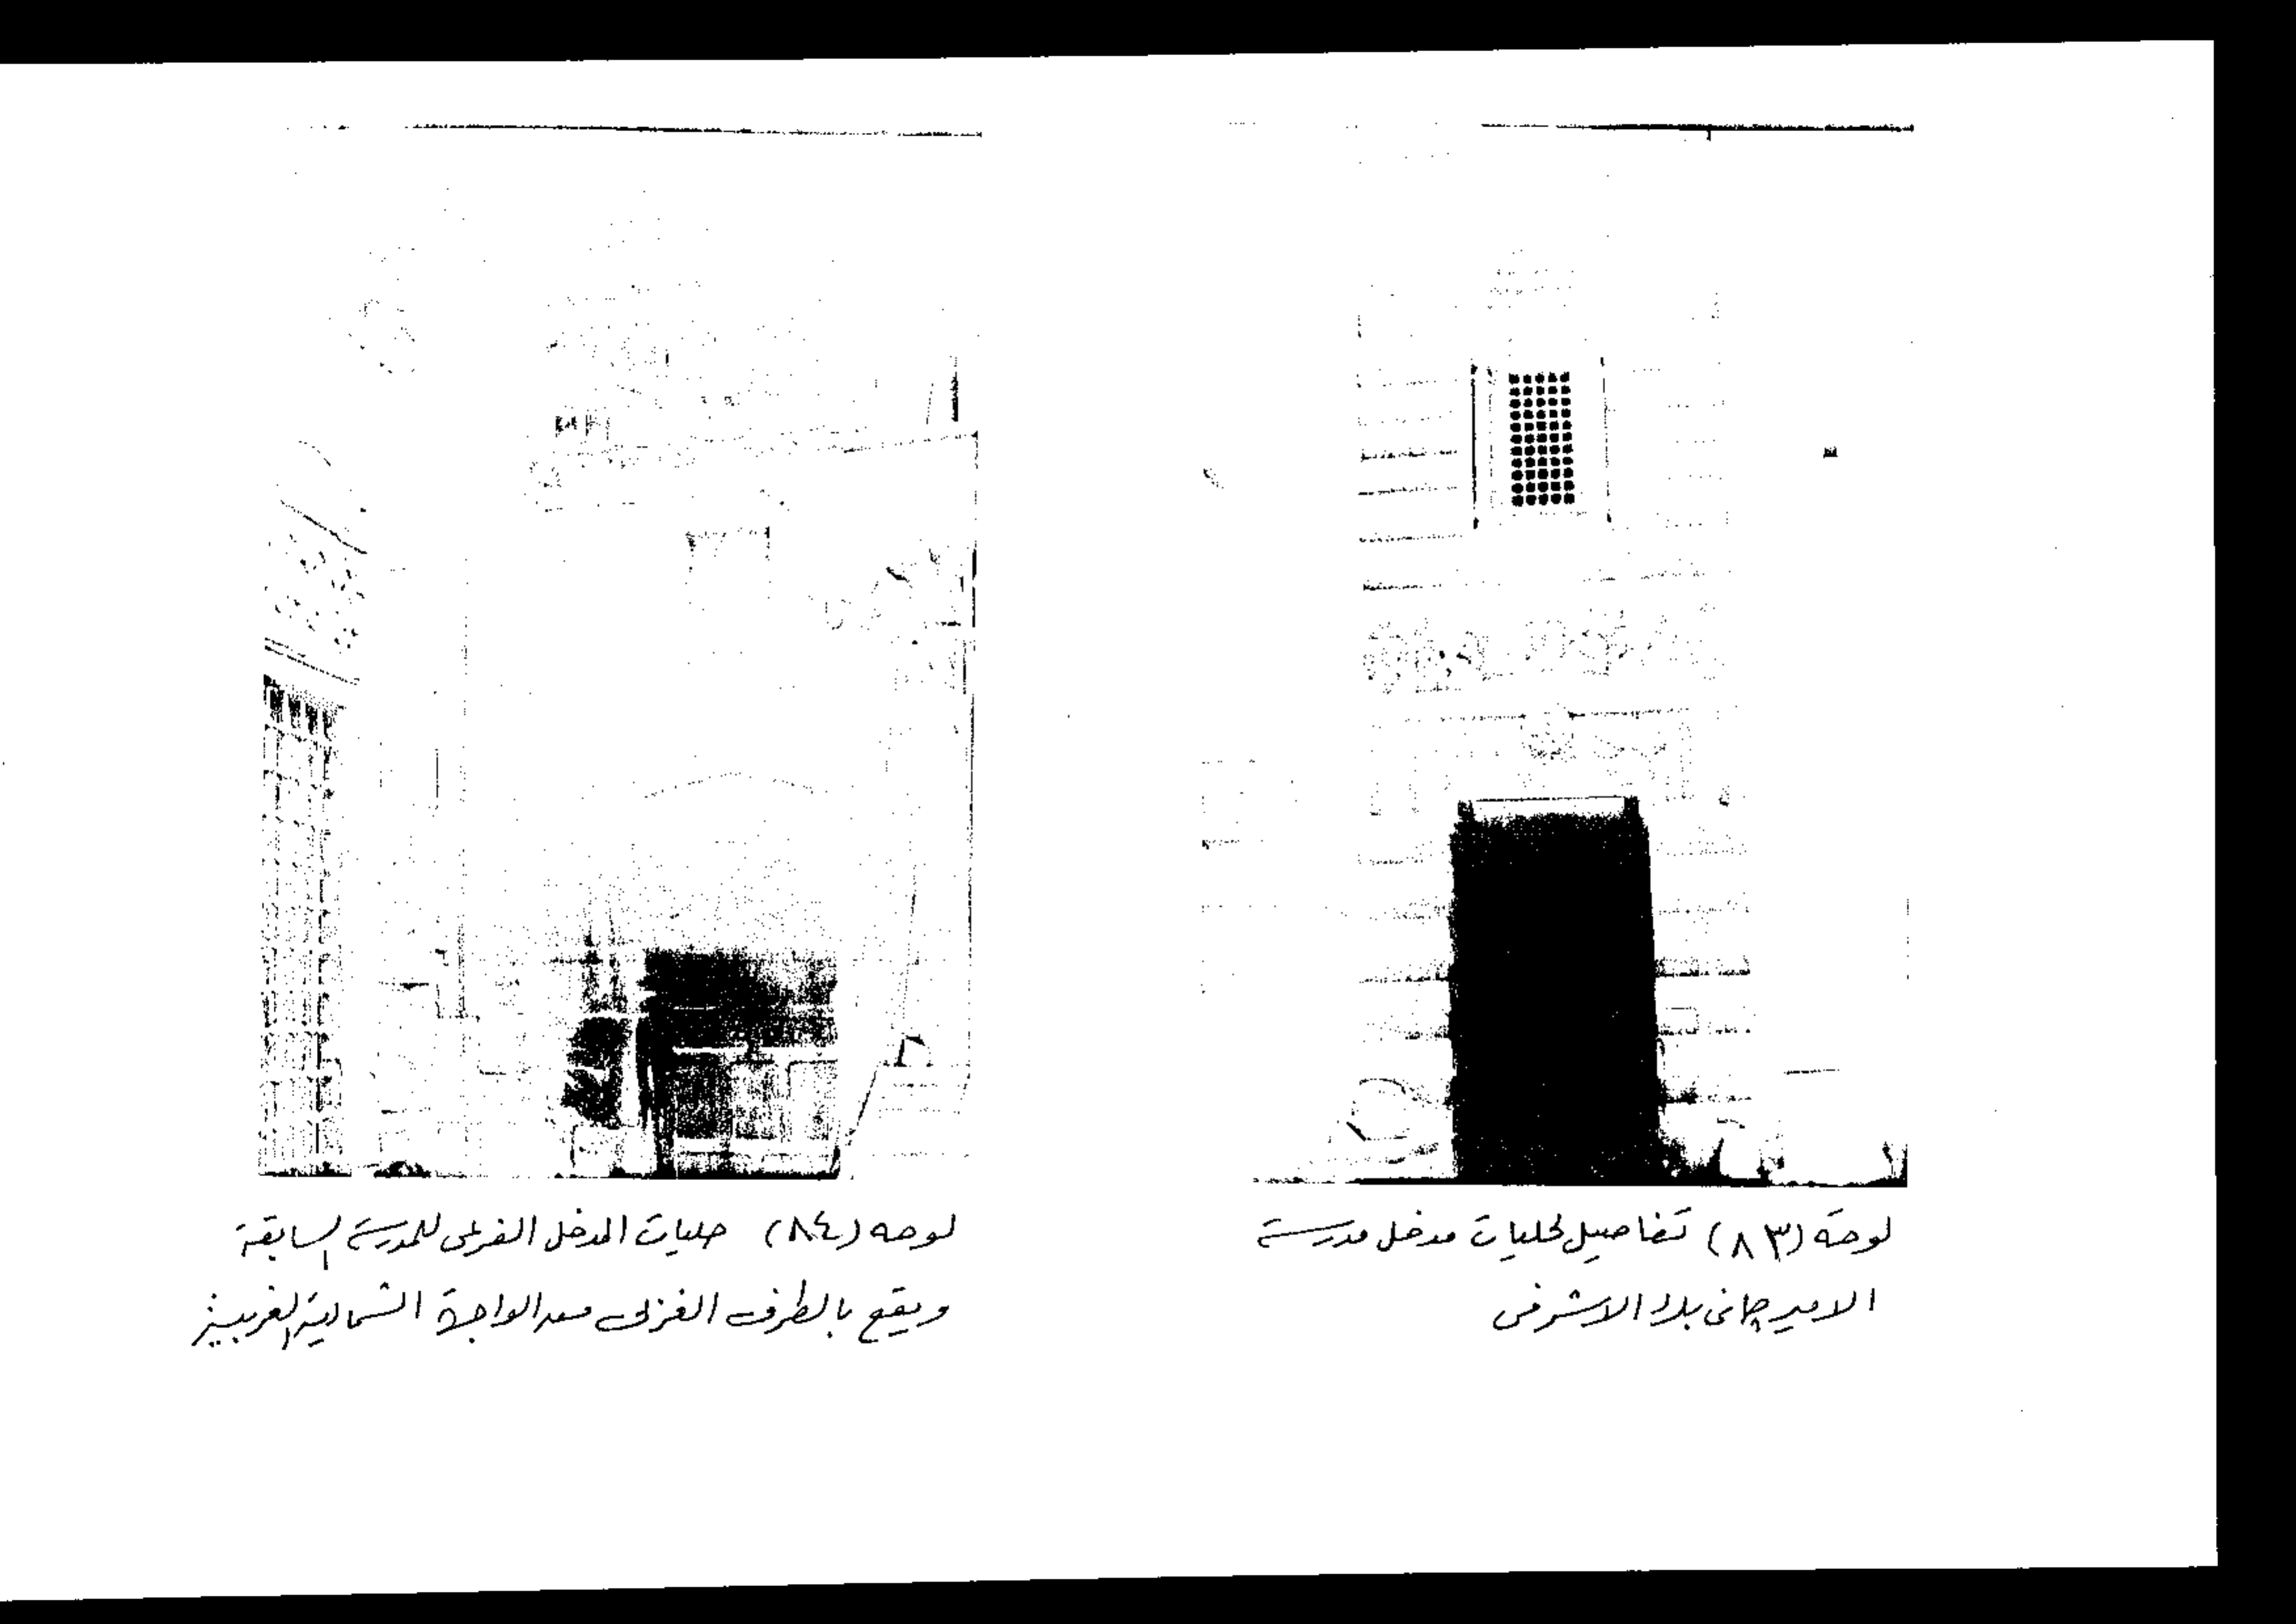 لوحة (٨٣) تفاصيل لحليات مدخل مدرسة
الامير جانى بلاد الاشرفى
لوحه (٨٤) حليات المدخل الفرعى للمدرسة السابقة
ويقع بالطرف الغربى من الواجهة الشمالية الغربية